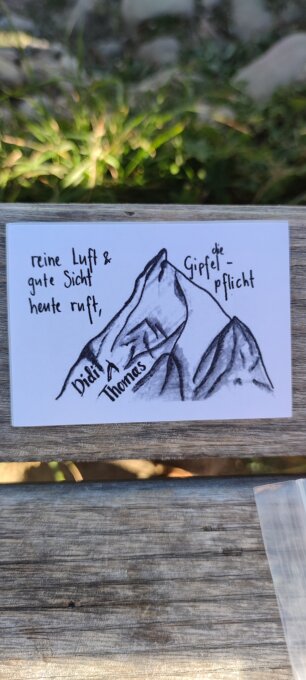 reine Luft &
gute Sicht
heute ruft,
die
Gipfel-
pflicht
Didi
Thomas